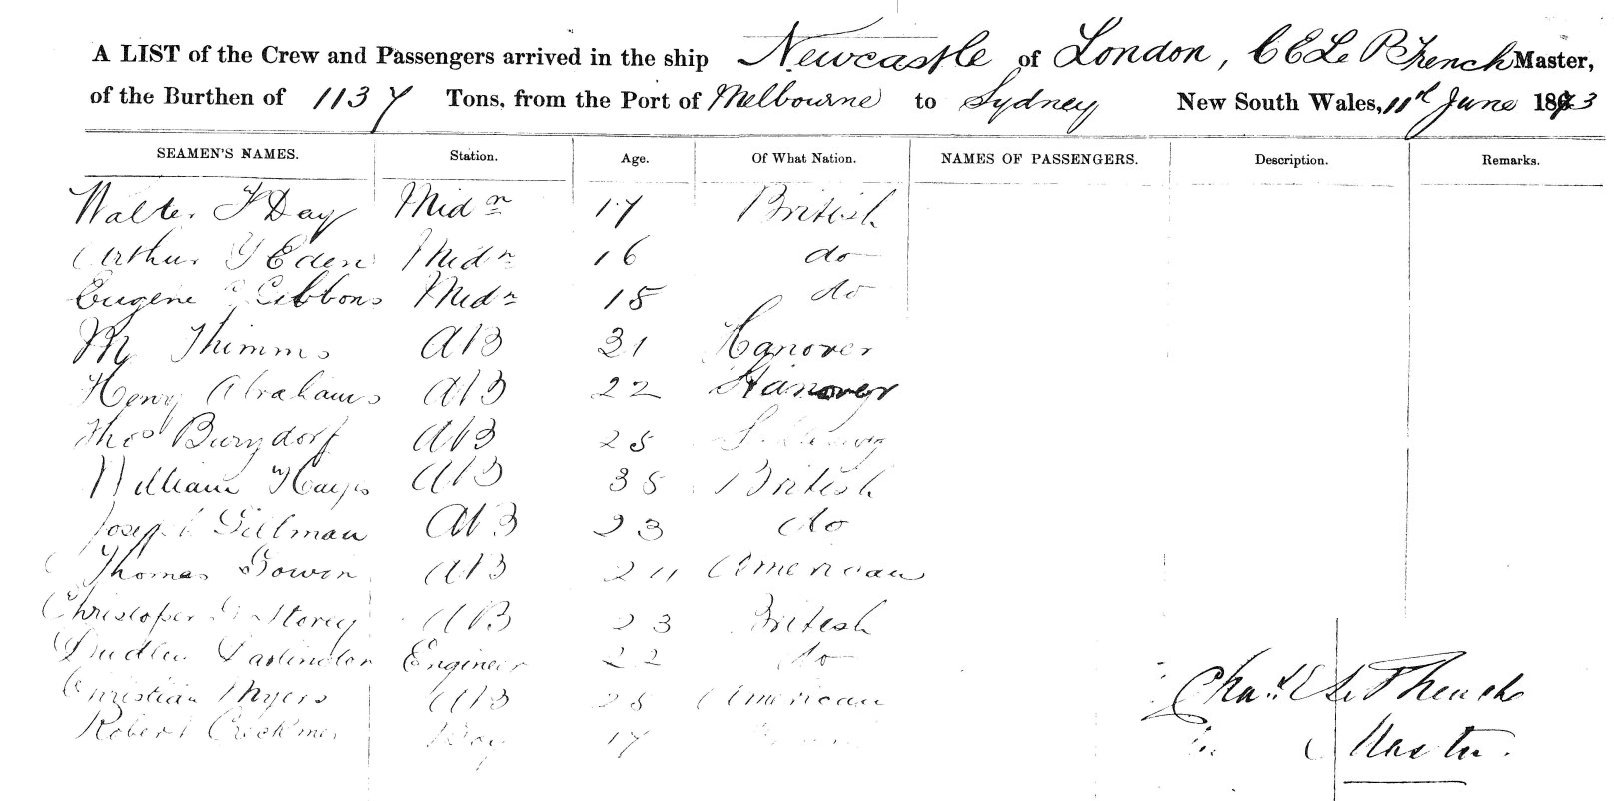 A LIST of the Crew and Passengers arrived in the ship Newcastle of London, C E Le P French Master,
of the Burthen of 1137 Tons, from the Port of Melbourne to Sydney New South Wales, 11th June 1873
SEAMEN'S NAMES. Station. Age. Of What Nation. NAMES OF PASSENGERS. Description. Remarks.
Walter F Day Midn 17 British
Arthur Y Eden Midn 16 do
Eugene Gibbons Midn 18 do
M Thimms AB 31 Hanover
Henry Abrahams AB 22 Hanover
Thos Burgdorf AB 25
William Hays AB 38 British
Joseph Gillman AB 23 do
Thomas Gowin AB American
Christopher Storey AB 23 British
Dudley Darlington Engineer 22 do
Christian Myers AB 28 American
Robert Creekmer Boy 17
Chas E Le P French
Master.